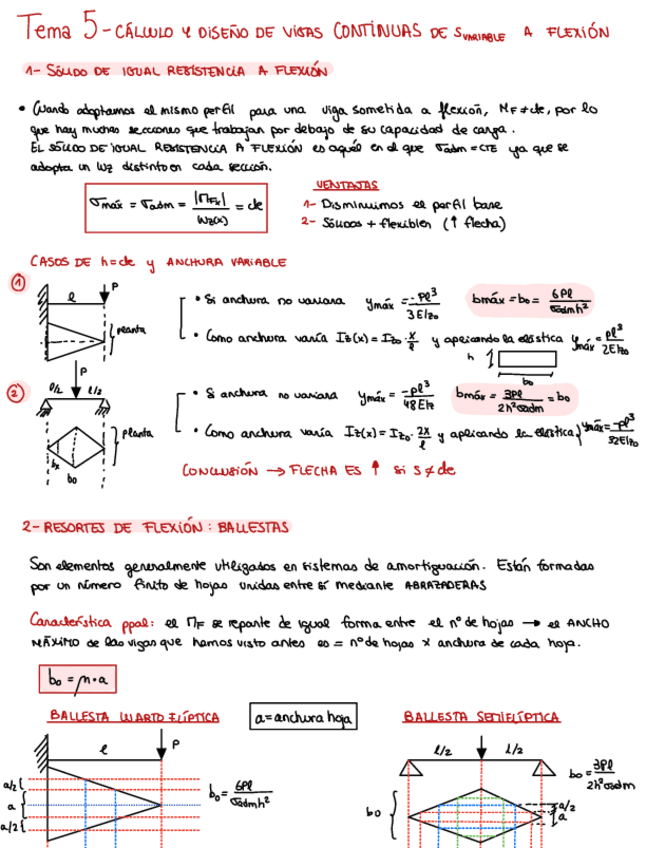 Tema 5 - CÁLCULO Y DISEÑO DE VIGAS CONTÍNUAS DE S VARIABLE A FLEXIÓN
1- SÓLIDO DE IGUAL RESISTENCIA A FLEXIÓN
• Cuando adoptamos el mismo perfil para una viga sometida a flexión, MF ≠ cte, por lo
que hay muchas secciones que trabajan por debajo de su capacidad de carga.
EL SÓLIDO DE IGUAL RESISTENCIA A FLEXIÓN es aquél en el que σadm = CTE ya que se
adopta un Wz distinto en cada sección.
σmáx = σadm = |MFx| / Wz(x) = cte
VENTAJAS
1- Disminuimos el perfil base
2- Sólidos + flexibles (↑ flecha)
CASOS DE h = cte y ANCHURA VARIABLE
①
P
l
planta
• Si anchura no variara ymáx = -Pl³ / 3EIzo
bmáx = bo = 6Pl / σadmh²
• Como anchura varía Iz(x) = Izo · x/l y aplicando la elástica ymáx = Pl³ / 2EIzo
h
bo
②
P
l/2 l/2
planta
bx
bo
• Si anchura no variara ymáx = -Pl³ / 48EIz
bmáx = 3Pl / 2h²σadm = bo
• Como anchura varía Iz(x) = Izo · 2x/l y aplicando la elástica, ymáx = -Pl³ / 32EIzo
CONCLUSIÓN → FLECHA ES ↑ si S ≠ cte
2- RESORTES DE FLEXIÓN: BALLESTAS
Son elementos generalmente utilizados en sistemas de amortiguación. Están formadas
por un número finito de hojas unidas entre sí mediante ABRAZADERAS
Característica ppal: el MF se reparte de igual forma entre el nº de hojas → el ANCHO
MÁXIMO de las vigas que hemos visto antes es = nº de hojas x anchura de cada hoja.
bo = n · a
BALLESTA CUARTO ELÍPTICA
a = anchura hoja
BALLESTA SEMIELÍPTICA
l
P
a/2
a
a/2
bo = 6Pl / σadmh²
l/2 l/2
bo = 3Pl / 2h²σadm
bo
a/2
a